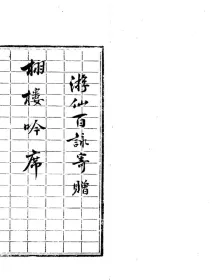 游仙百詠寄贈
栩樓吟席